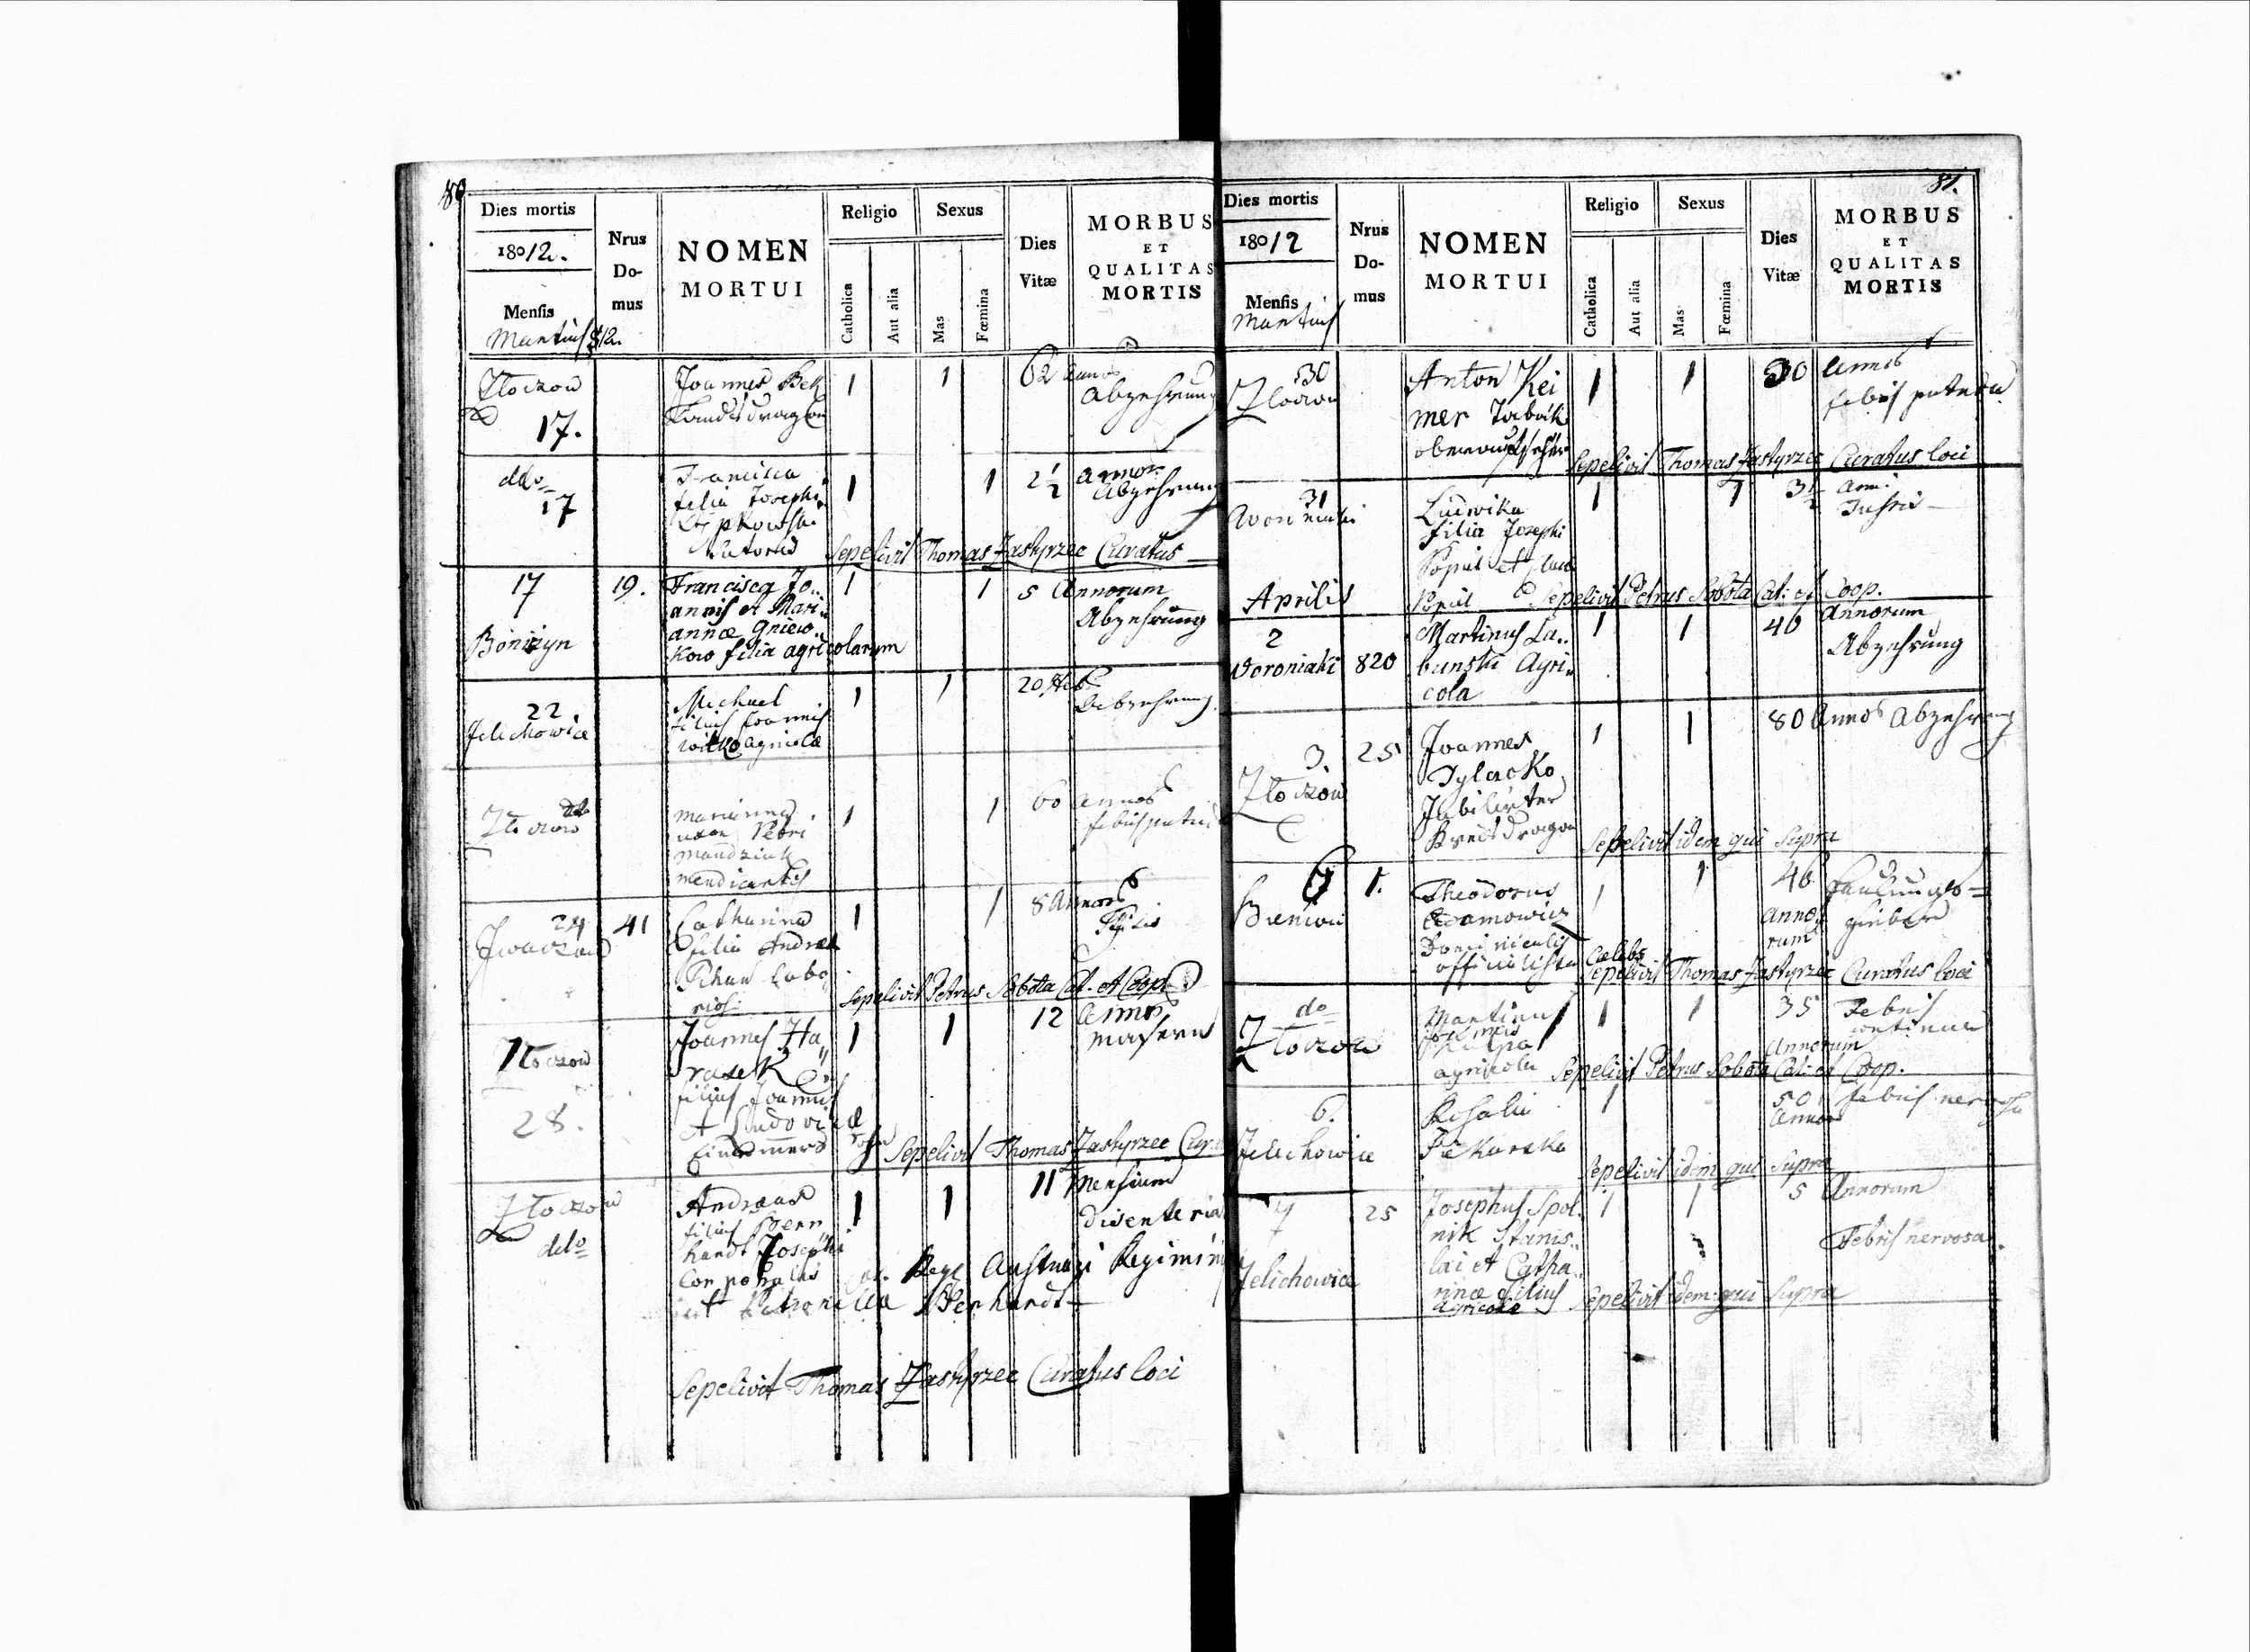 80.
Dies mortis
1801/2.
Mensis
Martius 812.
Nrus
Do-
mus
NOMEN
MORTUI
Religio
Catholica
Aut alia
Sexus
Mas
Fœmina
Dies
Vitæ
MORBUS
ET
QUALITAS
MORTIS
Złoczow
17.
Joannes Bek
1
1
62 annos
Abzehrung
ddo
17
Francisca
filia Josephi
1
1
2½ annor
Abzehrung
Sepelivit Thomas Zastyrzec Curatus
17
Boniszyn
19.
Francisca Jo..
annis et Mari..
annæ Gniew..
kow filia agricolarum
1
1
5 Annorum
Abzehrung
22.
Jelichowice
Michael
filius Joannis
Witko agricolæ
1
1
20
Abzehrung
Złoczow
ddo
Marianna
uxor Petri
Mandziuk
mendicantis
1
1
60 annos
febris putrida
24
41
Catharina
filia Andreæ
1
1
8 Annos
Sepelivit Petrus Sobota Cat. et Coop.
Złoczow
28.
Joannes Ha„
rasek
filius Joannis
et Ludovicæ
1
1
12 annos
Masern
Sepelivit Thomas Zastyrzec Cura
Złoczow
ddo
Andreas
filius Bern„
hardt Josephi
Corporalis
Reg Austriaci Regimin
et Petronella Bernhardt
1
1
11 Mensium
disenteria
Sepelivit Thomas Zastyrzec Curatus loci
81.
Dies mortis
1801/2
Mensis
Martius
Nrus
Do-
mus
NOMEN
MORTUI
Religio
Catholica
Aut alia
Sexus
Mas
Fœmina
Dies
Vitæ
MORBUS
ET
QUALITAS
MORTIS
30
Złoczow
Anton Kei
mer Tabak
oberaufseher
1
1
30 annos
febris putrida
Sepelivit Thomas Zastyrzec Curatus loci
31
Woroniaki
Ludwika
filia Josephi
1
1
3½ Ann.
Sepelivit Petrus Sobota Cat: et Coop.
Aprilis
2
Woroniaki
820
Martinus La..
bunski Agri..
cola
1
1
46 Annorum
Abzehrung
3.
Złoczow
25
Joannes
1
1
80 Annos Abzehrung
Sepelivit idem qui Supra
6
1.
Theodorus
Adamowicz
Dominicalis
officialista Cælebs
1
1
46
Anno
rum
Sepelivit Thomas Zastyrzec Curatus loci
do
Złoczow
Martinus
agricola
1
1
35
Annorum
Febris
continua
Sepelivit Petrus Sobota Cat: et Coop.
6.
Jelichowice
Rosalia
Piekarska
1
50
Annor
febris nervosa
Sepelivit idem qui Supra
7
Jelichowice
25
Josephus Spol..
nik Stanis..
lai et Catha..
rinæ filius
Agricolæ
1
1
5 Annorum
Febris nervosa.
Sepelivit idem qui Supra